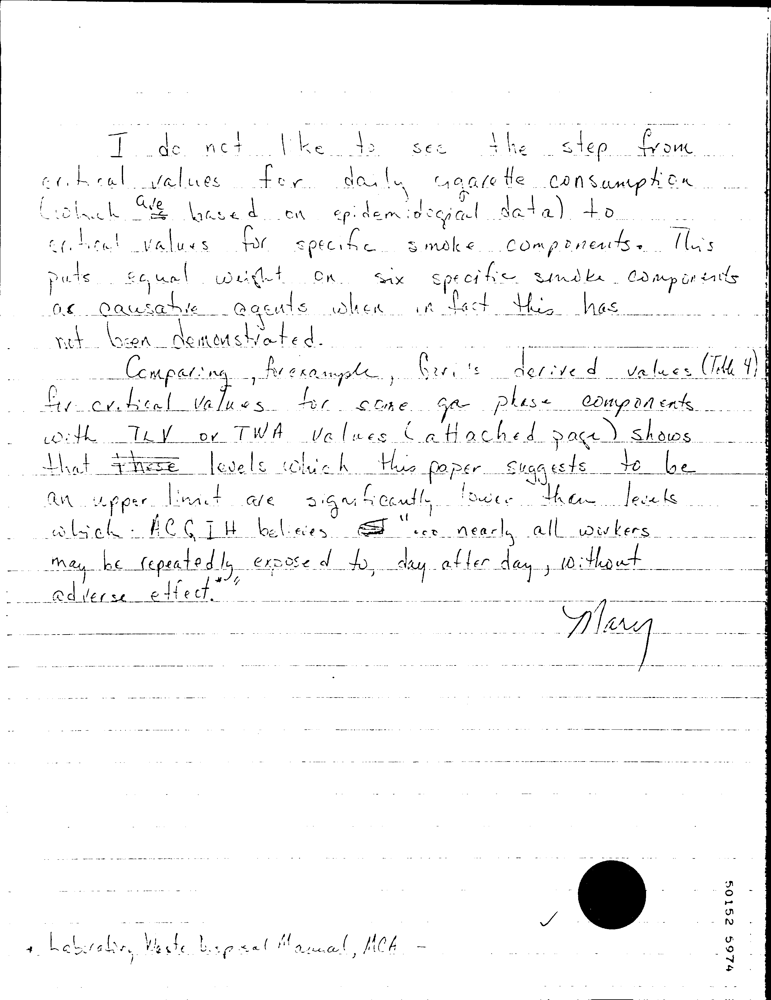 I do not like to see the step from
critical values for daily cigarette consumption
(which are based on epidemidogical data) to
critical values for specific smoke components. This
puts equal weight on six specific smoke components
as causative agents when in fact this has
not been demonstrated.
Comparing, for example, Gori's derived values (Table 4)
for critical values for some gas phase components
with TLV or TWA values (attached page) shows
that these levels which this paper suggests to be
an upper limit are significantly lower than levels
which ACGIH believes "... nearly all workers
may be repeatedly exposed to, day after day, without
adverse effect.*"
Mary
* Laboratory Waste Disposal Manual, MCA -
50152 5974